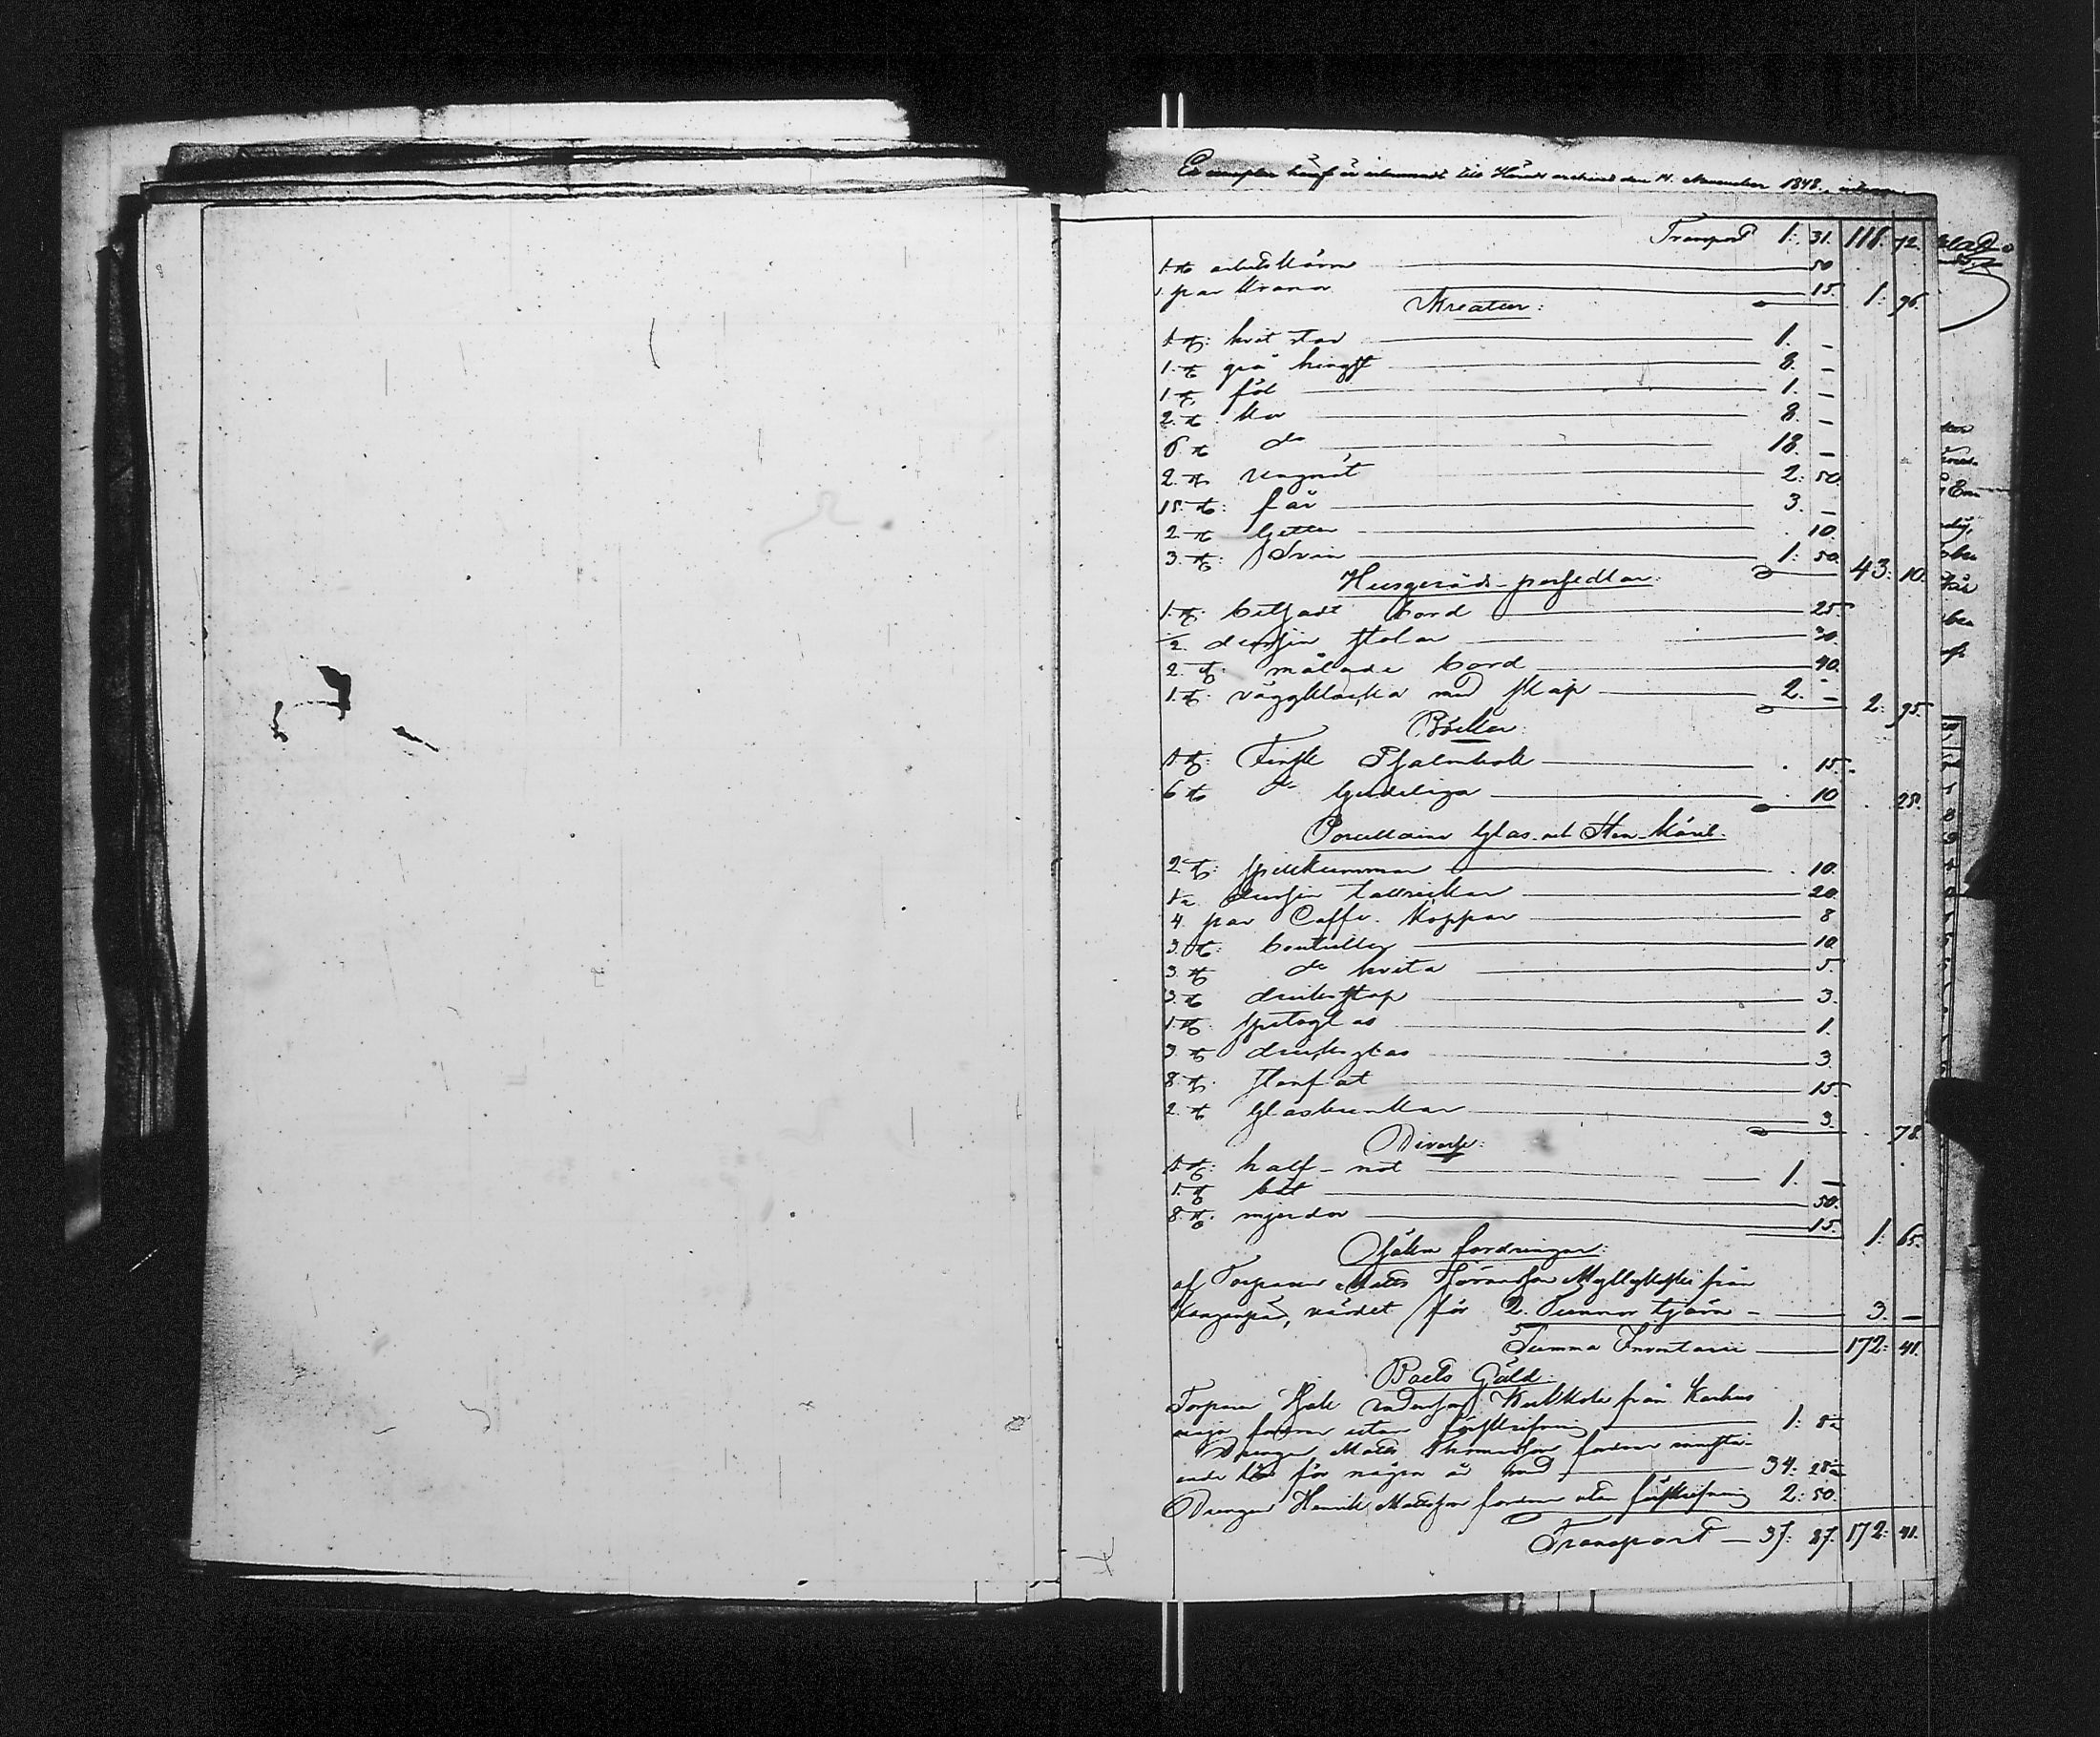 Ex emplar häraf är inlemnadt till Härads archivet den 14. November 1848.
Transport 1: 31. 118. 72.
1. st arbets kärra 50
1 par kranor 15. 1: 96.
Kreatur:
1. st: hvit sto 1. –
1. st grå hingst 8. –
1 st, föl 1. –
2. st kor 8. –
6. st do 18. –
2. st ungnöt 2: 50.
15. st: får 3. –
2 st Getter 10.
3. st: Svin 1: 50. 43: 10.
Husgeråds-persedlar:
1. st: betsadt bord 25
1/2 dussin stolar 30.
2. st: målade bord 40.
1. st: väggklocka med skåp 2. – 2: 95.
Böcker:
1 st: Finsk Psalmbok 15.
6 st do Gudeliga 10 25.
Porcellaine Glas och Sten-käril:
2 st: spillkummar 10.
1/2 dussin tallrickar 20.
4. par Caffe. koppar 8
3. st: bouteiller 10
3. st do hvita 5.
3. st dricks stop 3.
1. st. spetsglas 1.
3. st dricksglas 3
8 st. stenfat 15
2. st Glasburkar 3. 78.
Diverse:
1. st: half-not 1. –
1. st båt 50.
8. st. mjerdor 15. 1: 65.
Osäkra fordringar:
af Torparen Matts Göransson Myllykoski från
värdet för 2. Tunnor tjära – 3. –
Summa Inventarii 172: 41.
Boets Gäld:
Torparen från Karhus
fordrar utan förskrifning 1: 8
Drengen Matts Thomasson fordrar
för några år 34: 28
Drengen Henrik Mattsson fordrar utan förskrifning 2: 50.
Transport – 37: 87. 172: 41.